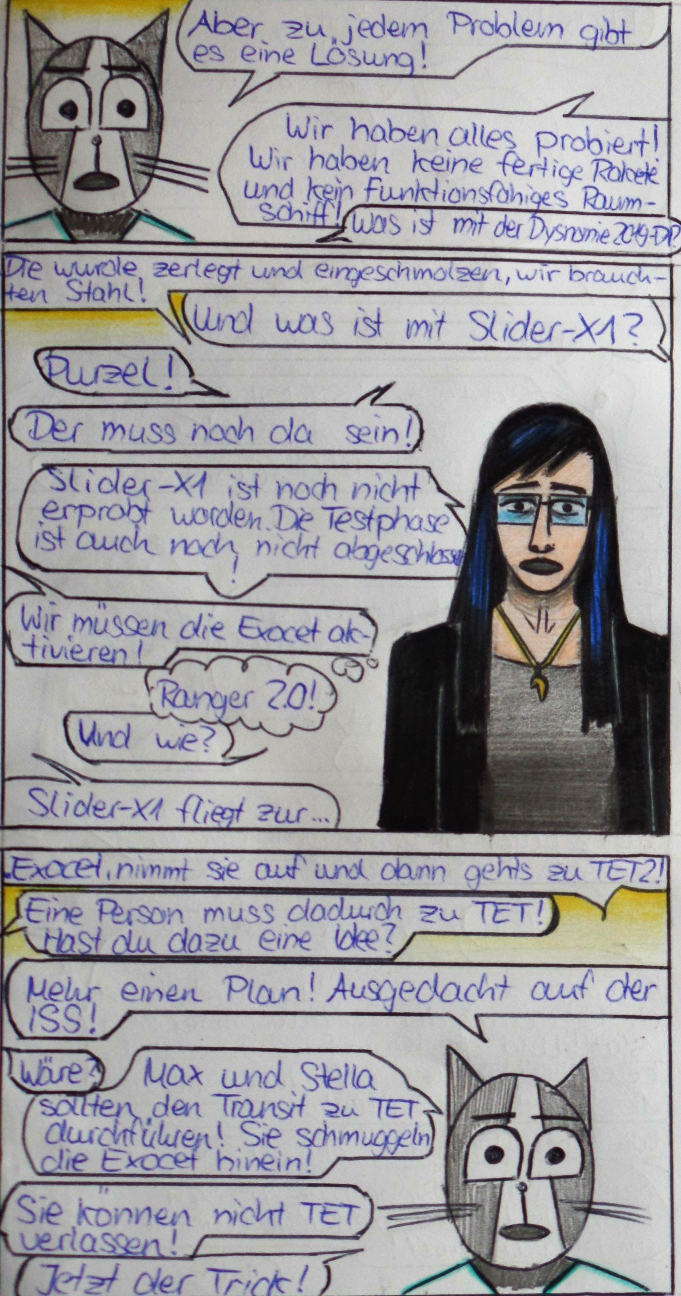 Aber zu jedem Problem gibt
es eine Lösung!
Wir haben alles probiert!
Wir haben keine fertige Rakete
und kein funktionsfähiges Raum-
schiff!
Was ist mit der Dysnomie 2019-DP?
Die wurde zerlegt und eingeschmolzen, wir brauch-
ten Stahl!
Und was ist mit Slider-X1?
Purzel!
Der muss noch da sein!
Slider-X1 ist noch nicht
erprobt worden. Die Testphase
ist auch noch nicht abgeschlossen
!
Wir müssen die Exocet ak-
tivieren!
Ranger 2.0!
Und we?
Slider-X1 fliegt zur...
Exocet, nimmt sie auf und dann gehts zu TET2!
Eine Person muss dadurch zu TET!
Hast du dazu eine Idee?
Mehr einen Plan! Ausgedacht auf der
ISS!
Wäre?
Max und Stella
sollten den Transit zu TET
durchführen! Sie schmuggeln
die Exocet hinein!
Sie können nicht TET
verlassen!
Jetzt der Trick!